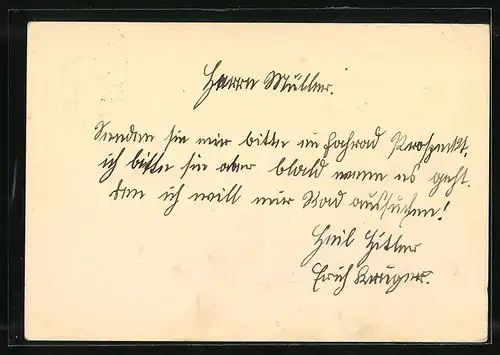 Herrn Müller.
Senden sie mir bitte im fahrad Prospeckt,
ich bitte sie aber blald wenn es geht.
den ich will mir Rad aussuchen!
Heil Hitler
Erich Krüger.